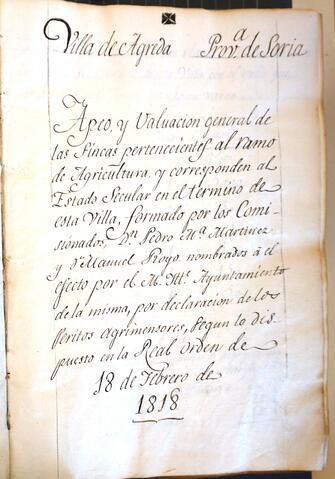 Villa de Agreda Prov.a de Soria
Apeo, y Valuacion general de
las Fincas pertenecientes al ramo
de Agricultura, y corresponden al
Estado Secular en el termino de
esta Villa, formado por los Comi-
sionados, Dn Pedro Ma. Martinez
y Dn Manuel Royo, nombrados á el
efecto por el M. Iltre. Ayuntamiento
de la misma, por declaracion de los
Peritos Agrimensores, segun lo dis-
puesto en la Real Orden de
18 de Febrero de
1818